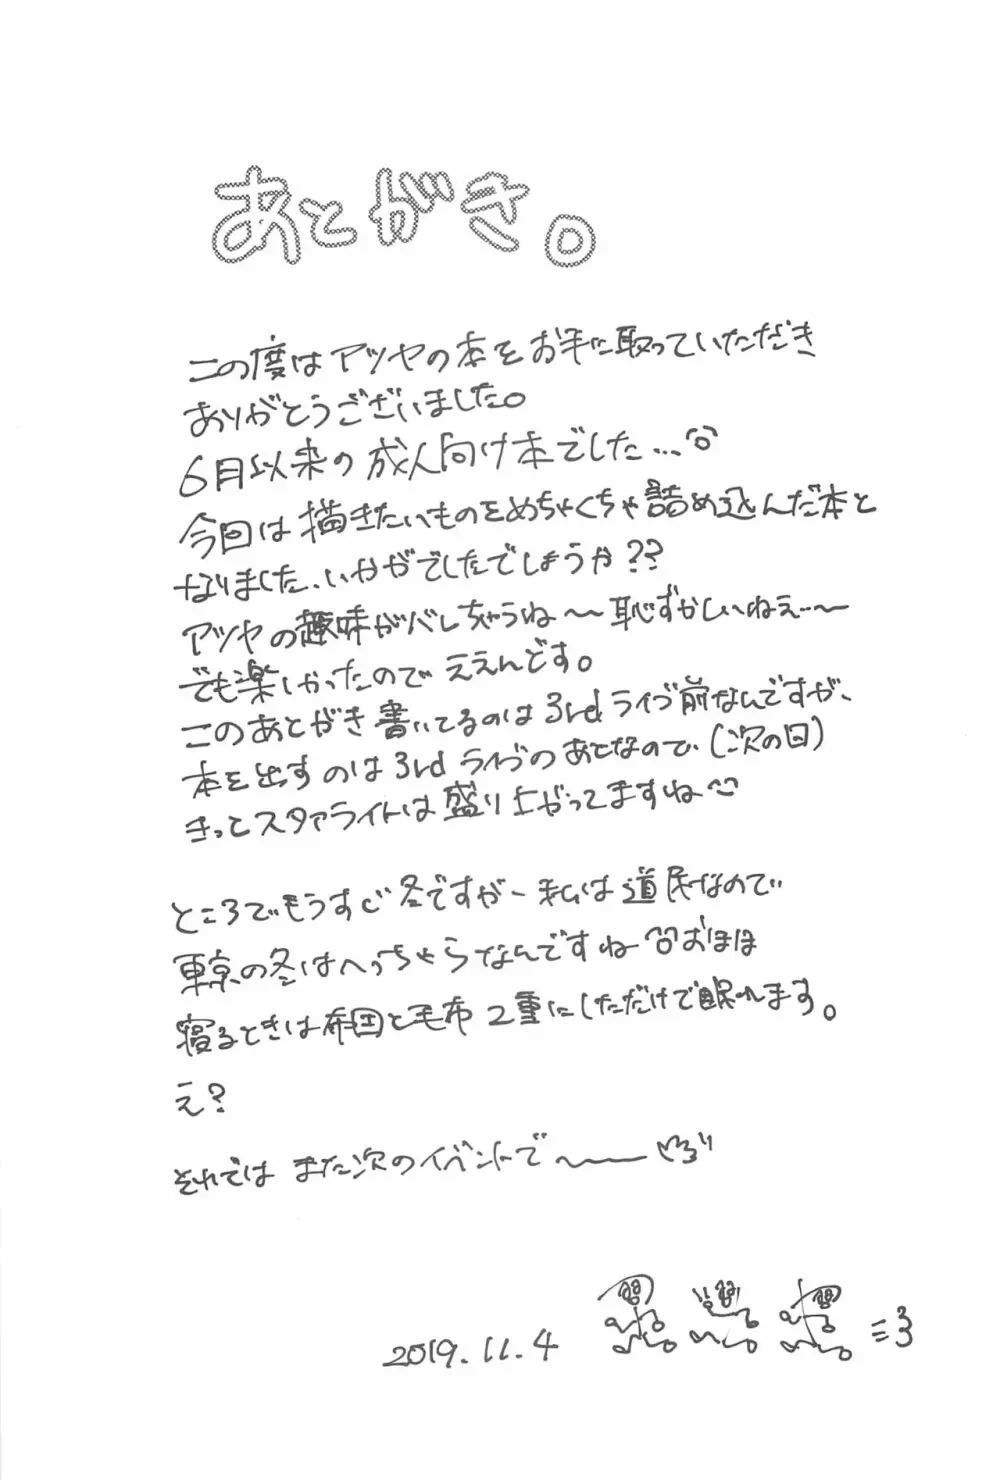 あとがき。
この度はアツヤの本をお手に取っていただき
ありがとうございました。
6月以来の成人向け本でした…
今回は描きたいものをめちゃくちゃ詰め込んだ本と
なりました、いかがでしたでしょうか??
アツヤの趣味がバレちゃうね〜恥ずかしいねぇ…〜
でも楽しかったのでええんです。
このあとがき書いてるのは3rdライブ前なんですが、
本を出すのは3rdライブのあとなので、(次の日)
きっとスタァライトは盛り上がってますね
ところでもうすぐ冬ですがー私は道民なので
東京の冬はへっちゃらなんですね おほほ
寝るときは布団と毛布2重にしただけで眠れます。
え?
それでは また次のイベントで〜
2019.11.4